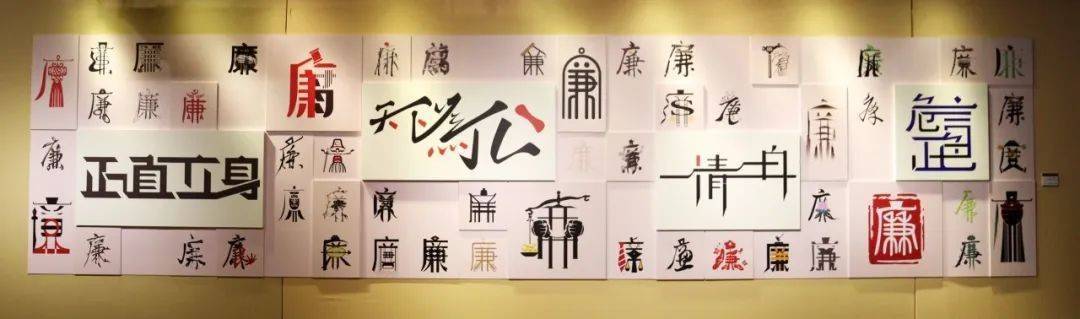 廉 廉 廉 廉 廉 廉 廉 廉 廉 廉 廉 廉 廉 廉
廉 廉 廉 天下為公 廉 廉 廉 廉 危言正色 廉
廉 正直立身 廉 廉 廉 廉 清白 廉
廉 廉 廉 廉 廉 廉 廉 廉 廉 廉
廉 廉 廉 廉 廉 廉 廉 廉 廉 廉 廉 廉 廉